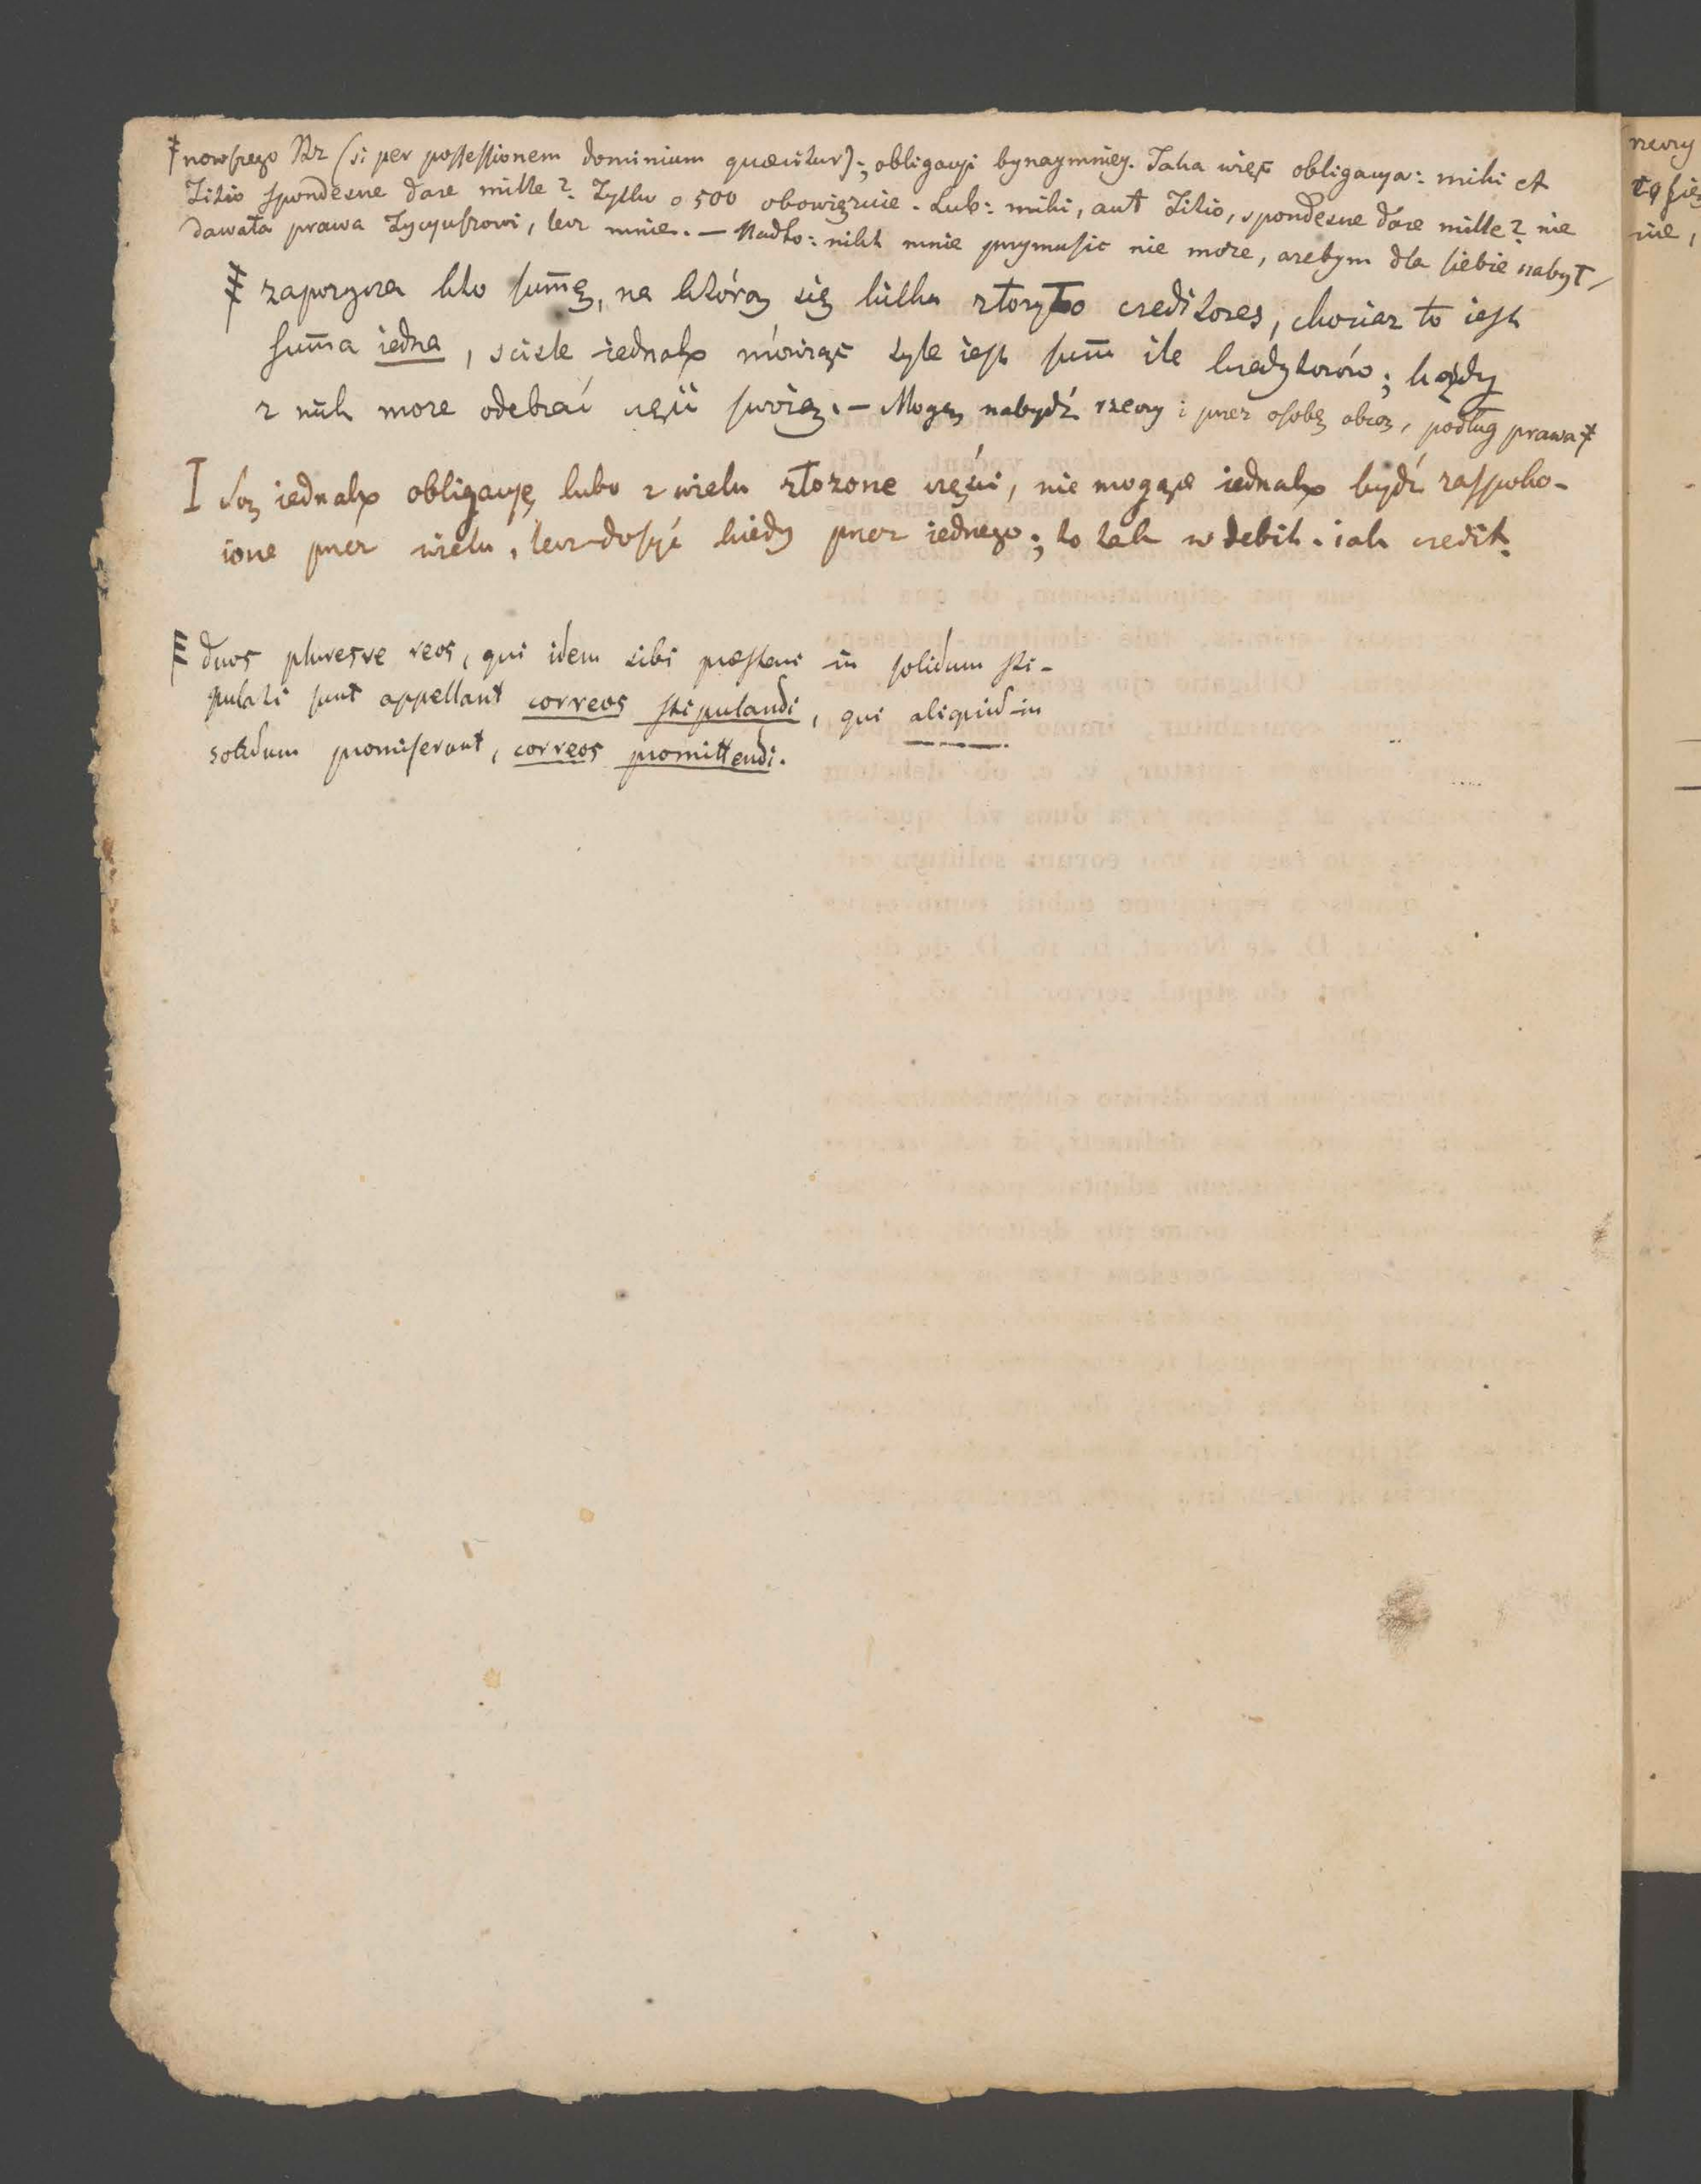 ‡ nowszego Rz (si per possessionem dominium quæritur); obligacyi bynaymniey. Taka więc obligacya: mihi et
Titio spondesne dare mille? Tylko o 500 obowięzuie. Lub: mihi, aut Titio, spondesne dare mille? nie
dawała prawa Tycyuszowi, lecz mnie. — Nadto: nikt mnie przymusic nie może, ażebym dla siebie nabył
zapożycza kto sum̄ę, na którą się kilku złożyło creditores, chociaz to iest
sum̄a iedna, scisle iednakże mówiąc tyle iest sum̄ ile kredytorów; każdy
z nich może odebrać częś swoię. — Mogę nabydź rzeczy i przez osobę obcą, podług prawa ‡
I Są iednakże obligacye lubo z wielu złożone części, nie mogące iednakże bydź zaspoko-
ione przez wielu, lecz dosyć kiedy przez iednego; to tak w debit. iak credit.
duos pluresve reos, qui idem sibi præstari in solidum sti-
pulati sunt appellant correos stipulandi, qui aliquid in
solidum promiserunt, correos promittendi.
rzeczy